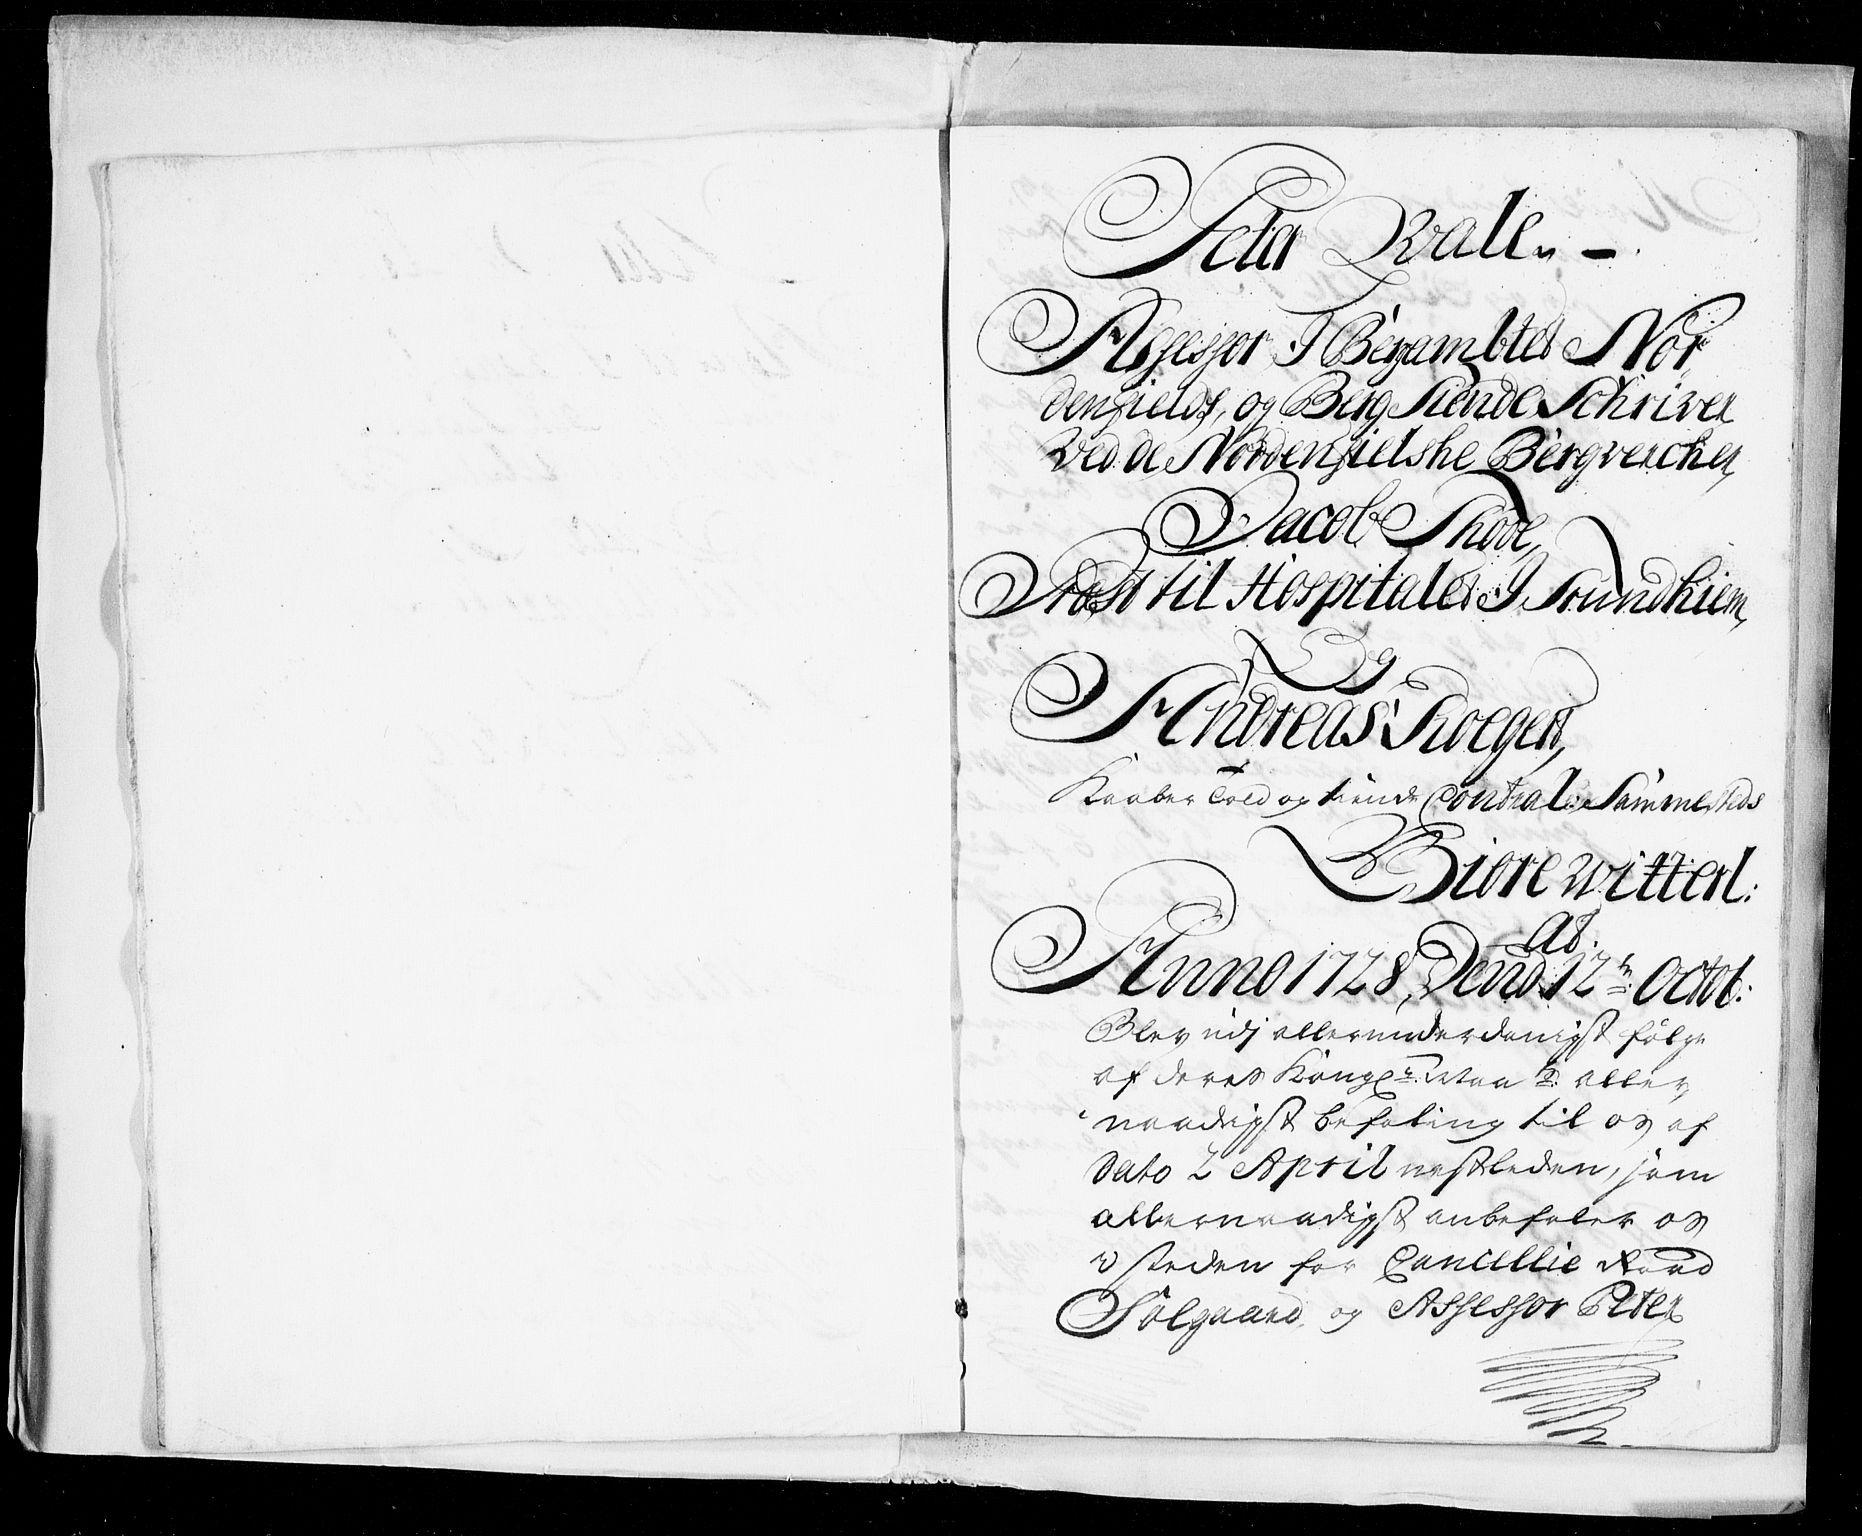 Peter Qvale, –.
Assessor I Bergambtet Nor
denfields, og Berg Tiende Schriver
ved de Nordenfielske Bergvercker,
Jacob Thode,
Præst til Hospitalet I Trundhiem,
Og
Andreas Roegert,
Kaaber Told og tiende Contral: Sammesteds
Giøre witterl:
At.
Anno 1728, Dend 12te Octob:
Blev udj allerunderdanigst følge
af deres Kongl: Maÿts aller
naadigst befaling til os af
Dato 2 April nestleden, som
allernaadigst anbefaler os
i steden for Cancellie Raad
Sølgaard og Assessor Peter